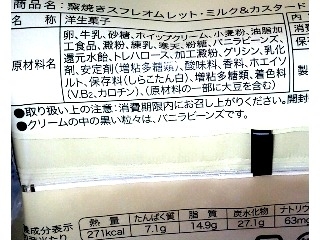 商品名 窯焼きスフレオムレット・ミルク&カスタード
名 称 洋生菓子
原材料名 卵、牛乳、砂糖、ホイップクリーム、小麦粉、油脂加
工食品、澱粉、練乳、寒天、粉糖、バニラビーンズ、
還元水飴、トレハロース、加工澱粉、グリシン、乳化
剤、安定剤(増粘多糖類)、酸味料、香料、ホエイソ
ルト、保存料(しらこたん白)、増粘多糖類、着色料
(V.B₂、カロチン)、(原材料の一部に大豆を含む)
●取り扱い上の注意:消費期限内にお召し上がりください。開封
●クリームの中の黒い粒々は、バニラビーンズです。
内
消費
保
製
養成分表示 熱 量 たんぱく質 脂 質 炭水化物 ナトリウ
271kcal 7.1g 14.9g 27.1g 63mg